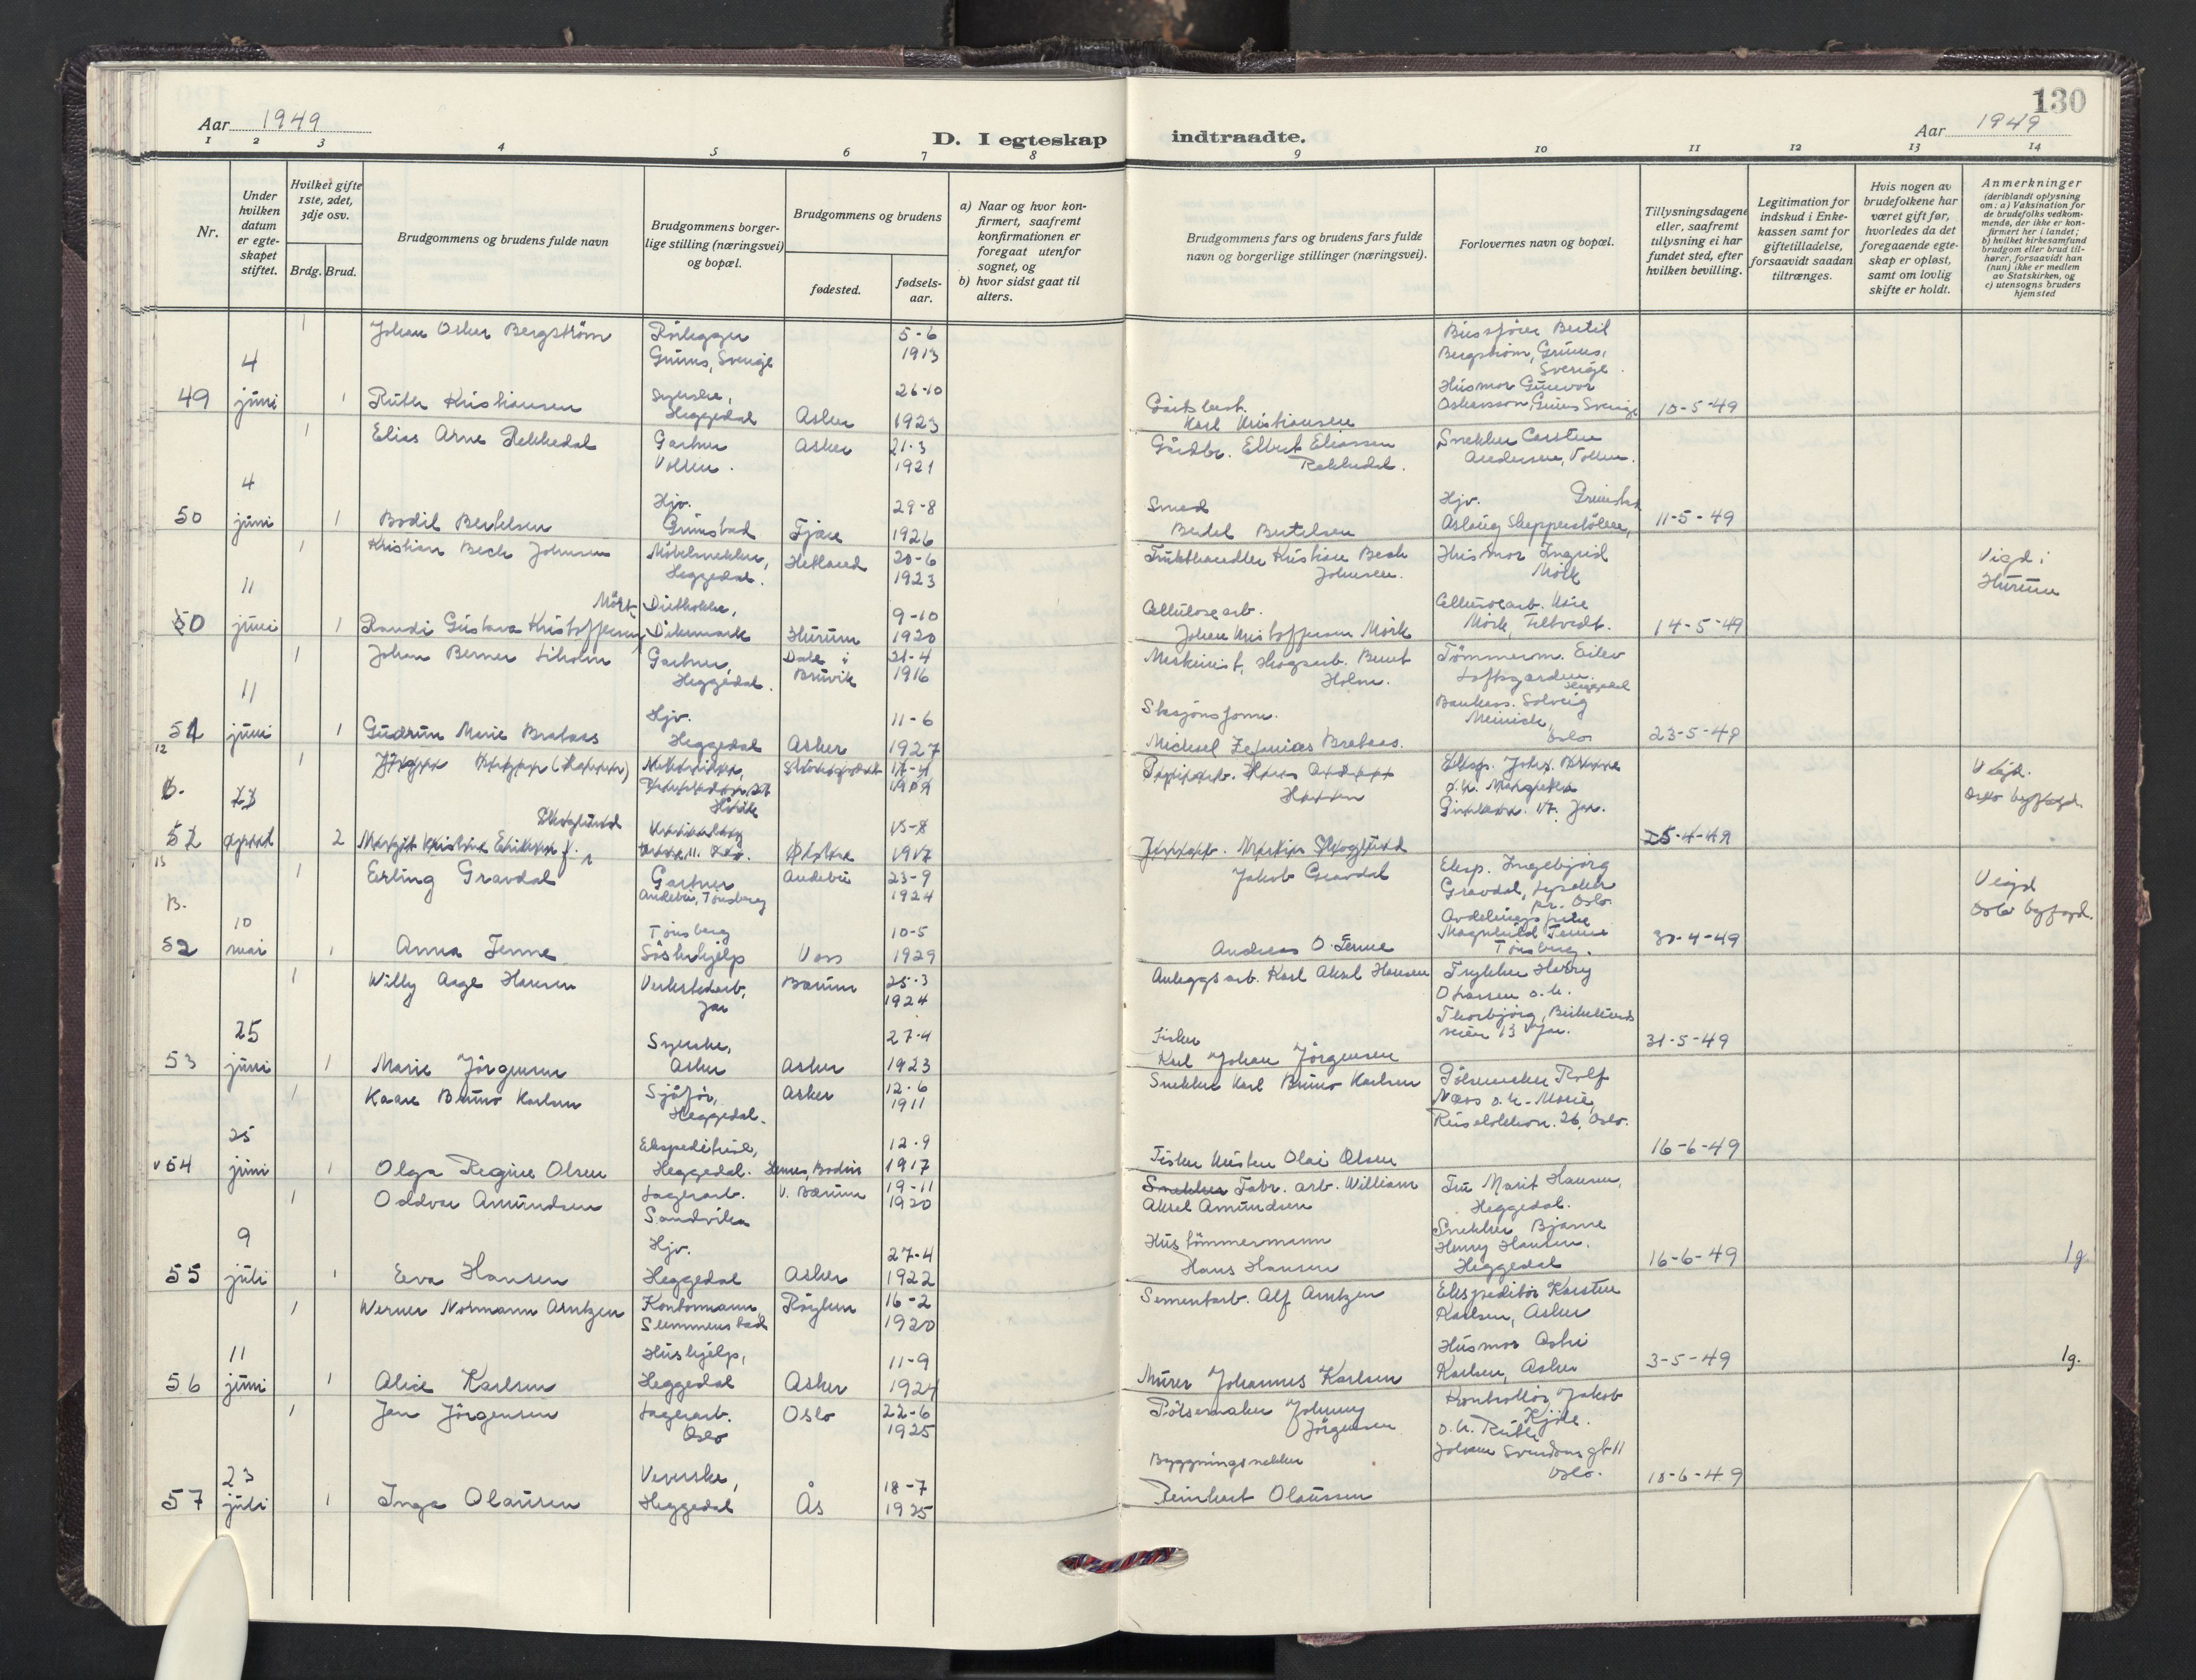 130
Aar 1949
D. I egteskap indtraadte.
Aar 1949
1 2 3 4 5 6 7 8 9 10 11 12 13 14
Nr.
Under hvilken datum er egteskapet stiftet.
Hvilket gifte 1ste, 2det, 3dje osv.
Brdg. Brud.
Brudgommens og brudens fulde navn
Brudgommens borgerlige stilling (næringsvei) og bopæl.
Brudgommens og brudens
fødested.
fødselsaar.
a) Naar og hvor konfirmert, saafremt konfirmationen er foregaat utenfor sognet, og
b) hvor sidst gaat til alters.
Brudgommens fars og brudens fars fulde navn og borgerlige stillinger (næringsvei).
Forlovernes navn og bopæl.
Tillysningsdagene eller, saafremt tillysning ei har fundet sted, efter hvilken bevilling.
Legitimation for indskud i Enkekassen samt for giftetilladelse, forsaavidt saadan tiltrænges.
Hvis nogen av brudefolkene har været gift før, hvorledes da det foregaaende egteskap er opløst, samt om lovlig skifte er holdt.
Anmerkninger
(deriblandt oplysning om: a) Vaksination for de brudefolks vedkommende, der ikke er konfirmert her i landet;
b) hvilket kirkesamfund brudgom eller brud tilhører, forsaavidt han (hun) ikke er medlem av Statskirken, og
c) utensogns bruders hjemsted
1 Johan Oskar Bergström Rörlegger 5-6
Grums, Sverige 1913
Bergström, Grums,
Sverige.
4 26-10 Husmor Gunvor
49 juni 1 Ruth Kristiansen Syerske, Heggedal Asker 1923 Karl Kristiansen Oskarsson, Grums Sverige 10-5-49
1 Elias Arne Rekkedal Gartner Asker 21-3 Gårdbr. Elbert Eliassen Snekker Carsten
Vollen. 1921 Rekkedal. Andersen, Vollen.
4 Hjv. 29-8 Smed Hjv. Grimstad
50 juni 1 Bodil Bertelsen Grimstad Fjære 1926 Bertel Bertelsen Aslaug 11-5-49
1 Kristian Bech Johnsen Möbelsnekker, Hetland 20-6 Frukthandler Kristian Bech Husmor Ingrid Vigd i
Heggedal. 1923 Johnsen. Mörk Hurum
11 Mörk 9-10 Cellulosearb. Cellulosearb.
50 juni 1 Randi Gustava Kristoffersen Dikemark Hurum 1920 Johan Kristoffersen Mörk Mörk, Filtvedt. 14-5-49
1 Johan Berner Liholm Gartner, Dale i 21-4 Tömmerm. Eilev
Heggedal. Bruvik 1916 Holm. Loftsgarden.
Heggedal
11 Hjv. 11-6 Stasjonsform. Bankass. Solveig
51 juni 1 Gudrun Marie Brataas Heggedal Asker 1927 Michael Zefanias Brataas. Oslo 23-5-49
12 1 Vigd.
B. 23 Oslo byfogd.
Skoglund 15-8
52 april 2 Margit Kristine 1917 Skoglund 25-4-49
13 1 Erling Gravdal Gartner Andebu 23-9 Jakob Gravdal Eksp. Ingebjörg Vigd
Andebu, Tönsberg 1924 Gravdal, Lysaker Oslo byfogd.
pr. Oslo
B. 10 Tönsberg 10-5
52 mai 1 Anna Tenne Söskenhjelp Voss 1929 Andreas O. Tenne Magnhild Tenne Tönsberg. 30-4-49
1 Willy Aage Hansen Verkstedarb, Bærum 25-3 Anleggsarb. Karl Aksel Hansen Trykker Harry
Jar 1924 O Larsen o.h.
Thorbjörg,
25 Syerske, 27-4 Fisker veien 13 Jar.
53 juni 1 Marie Jörgensen Asker Asker 1923 Karl Johan Jörgensen 31-5-49
1 Kaare Bruno Karlsen Sjåför, Asker 12-6 Snekker Karl Bruno Karlsen Pölsemaker Rolf
Heggedal. 1911 Næss o.h. Marie,
26, Oslo.
25 Ekspeditrise, 12-9
v54 juni 1 Olga Regine Olsen Heggedal. Bodin 1917 Fisker Kristen Olai Olsen 16-6-49
1 Oddvar Amundsen Lagerarb. V. Bærum 19-11 Snekker Fabr. arb. William Fru Marit Hansen,
Sandvika 1920 Aksel Amundsen Heggedal.
9 Hjv. 27-4 Hustömmermann Snekker Bjarne Henry Hansen.
55 juli 1 Eva Hansen Heggedal Asker 1922 Hans Hansen Heggedal 16-6-49 1g.
1 Werner Normann Arntzen Kontormann Röyken 16-2 Sementarb. Alf Arntzen Ekspeditör Karsten
Slemmestad 1920 Karlsen, Asker
11 Hushjelp, 11-9 Husmor
56 juni 1 Alice Karlsen Heggedal Asker 1924 Murer Johannes Karlsen Karlsen, Asker 3-5-49 1g.
1 Jan Jörgensen Lagerarb. Oslo 22-6 Pölsemaker Johnny Kontrollör Jakob
Oslo 1925 Jörgensen Kjöle.
o.h. Ruth
23 Veverske, 18-7 Bygningsnekker Johan Svendsens gt 11
57 juli 1 Inga Olaussen Heggedal Ås 1925 Reinhart Olaussen Oslo. 10-6-49